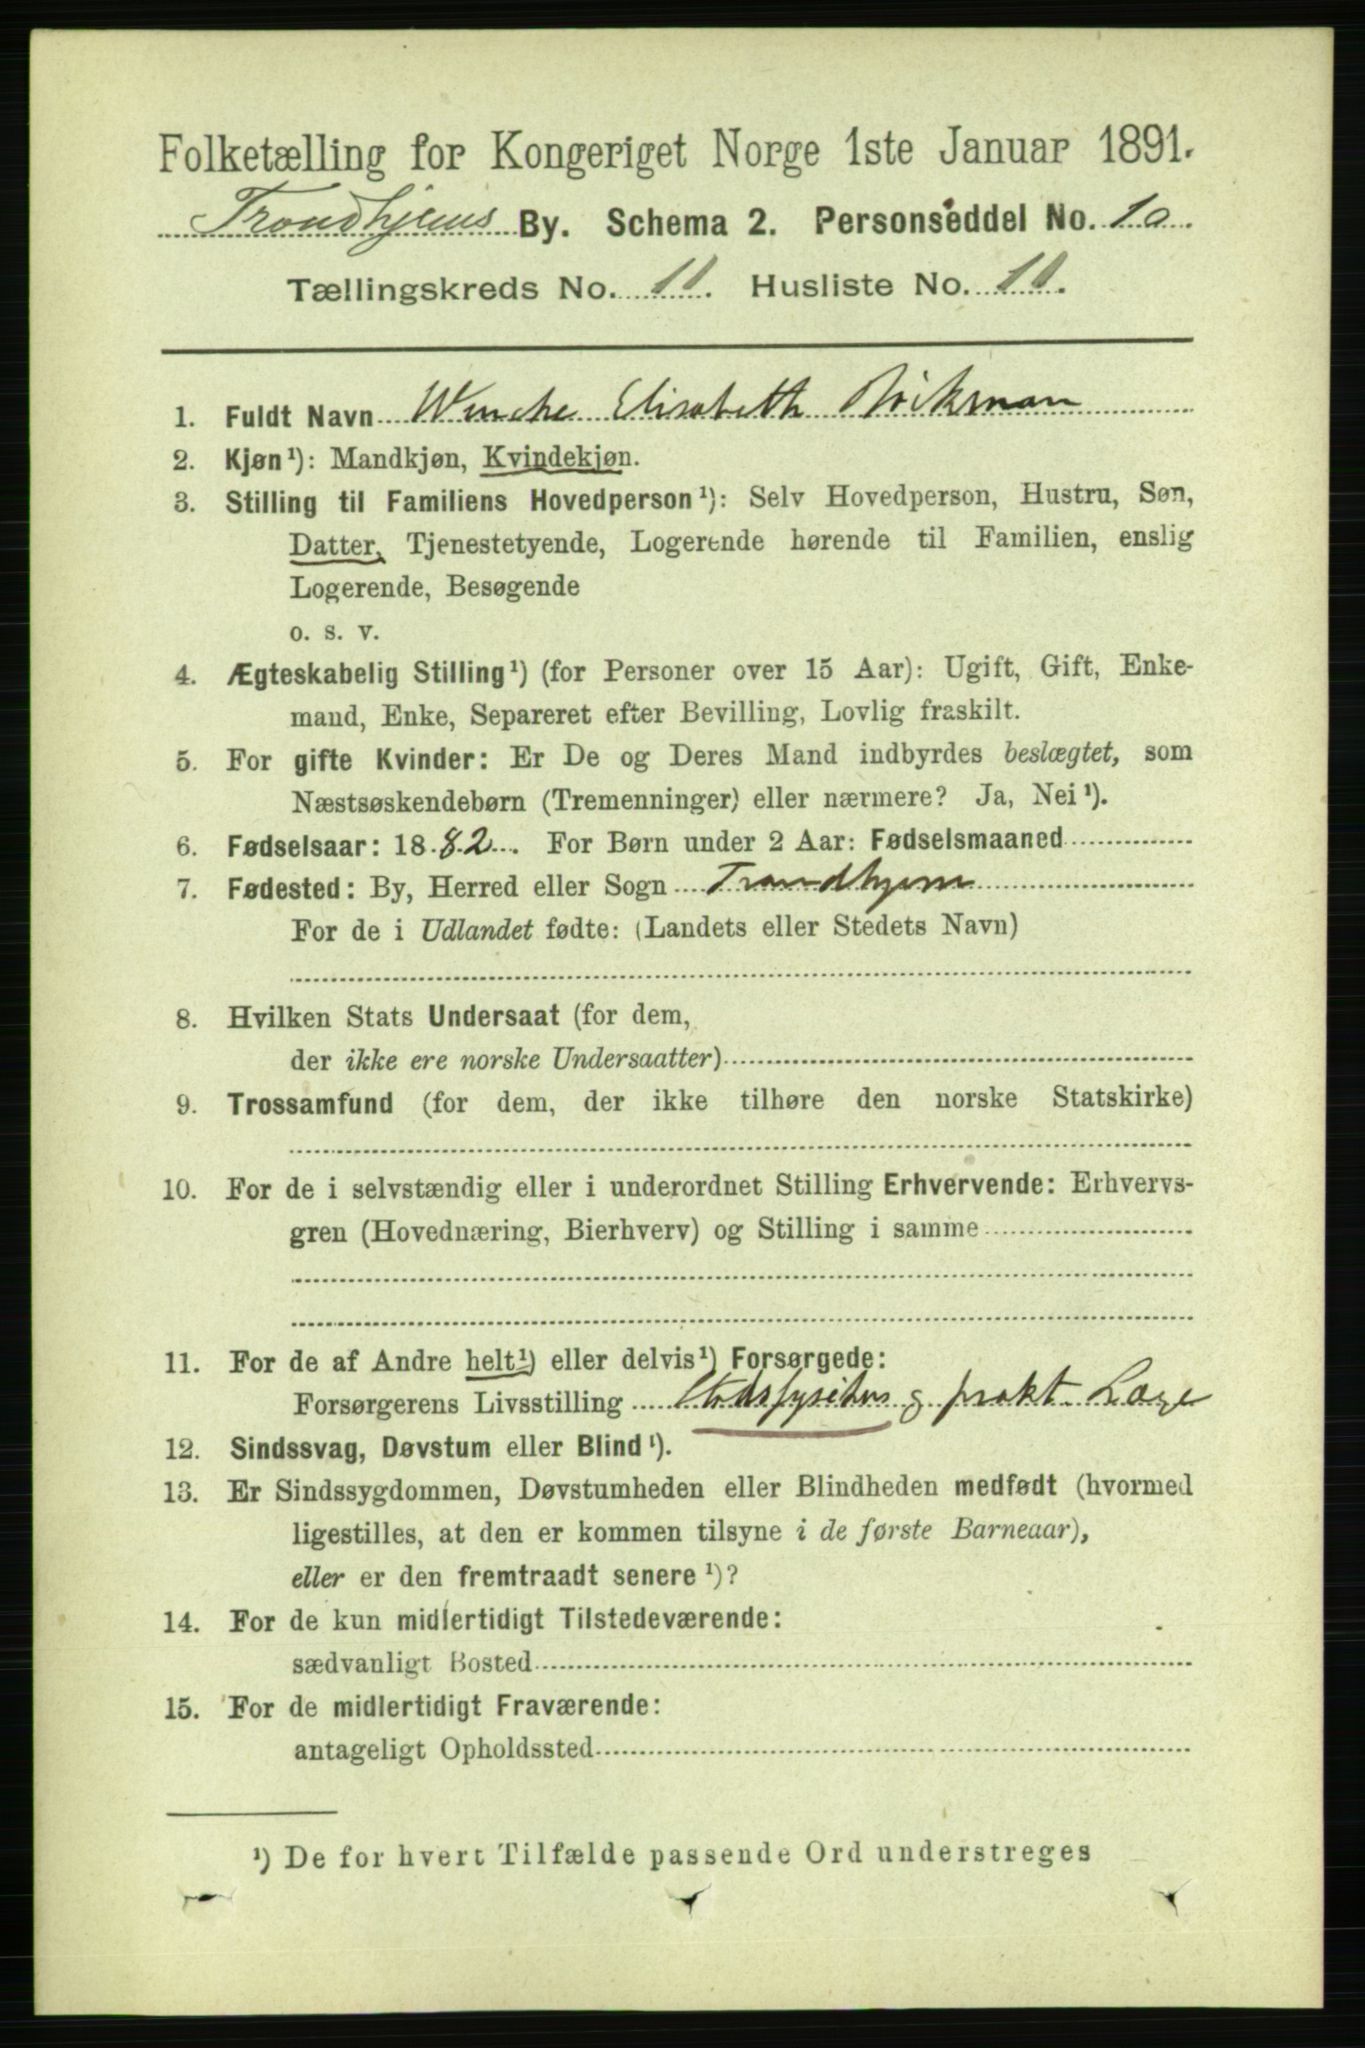 Folketælling for Kongeriget Norge 1ste Januar 1891.
Trondhjems By. Schema 2. Personseddel No. 10.
Tællingskreds No. 11. Husliste No. 10.
1. Fuldt Navn Wenche Elisabeth
2. Kjøn¹): Mandkjøn, Kvindekjøn.
3. Stilling til Familiens Hovedperson¹): Selv Hovedperson, Hustru, Søn,
Datter, Tjenestetyende, Logerende hørende til Familien, enslig
Logerende, Besøgende
o. s. v.
4. Ægteskabelig Stilling¹) (for Personer over 15 Aar): Ugift, Gift, Enke-
mand, Enke, Separeret efter Bevilling, Lovlig fraskilt.
5. For gifte Kvinder: Er De og Deres Mand indbyrdes beslægtet, som
Næstsøskendebørn (Tremenninger) eller nærmere? Ja, Nei¹).
6. Fødselsaar: 1882. For Børn under 2 Aar: Fødselsmaaned
7. Fødested: By, Herred eller Sogn Trondhjem
For de i Udlandet fødte: (Landets eller Stedets Navn)
8. Hvilken Stats Undersaat (for dem,
der ikke ere norske Undersaatter)
9. Trossamfund (for dem, der ikke tilhøre den norske Statskirke)
10. For de i selvstændig eller i underordnet Stilling Erhvervende: Erhvervs-
gren (Hovednæring, Bierhverv) og Stilling i samme
11. For de af Andre helt¹) eller delvis¹) Forsørgede:
Forsørgerens Livsstilling Stadsfysikus og prakt. Læge
12. Sindssvag, Døvstum eller Blind¹).
13. Er Sindssygdommen, Døvstumheden eller Blindheden medfødt (hvormed
ligestilles, at den er kommen tilsyne i de første Barneaar),
eller er den fremtraadt senere¹)?
14. For de kun midlertidigt Tilstedeværende:
sædvanligt Bosted
15. For de midlertidigt Fraværende:
antageligt Opholdssted
¹) De for hvert Tilfælde passende Ord understreges